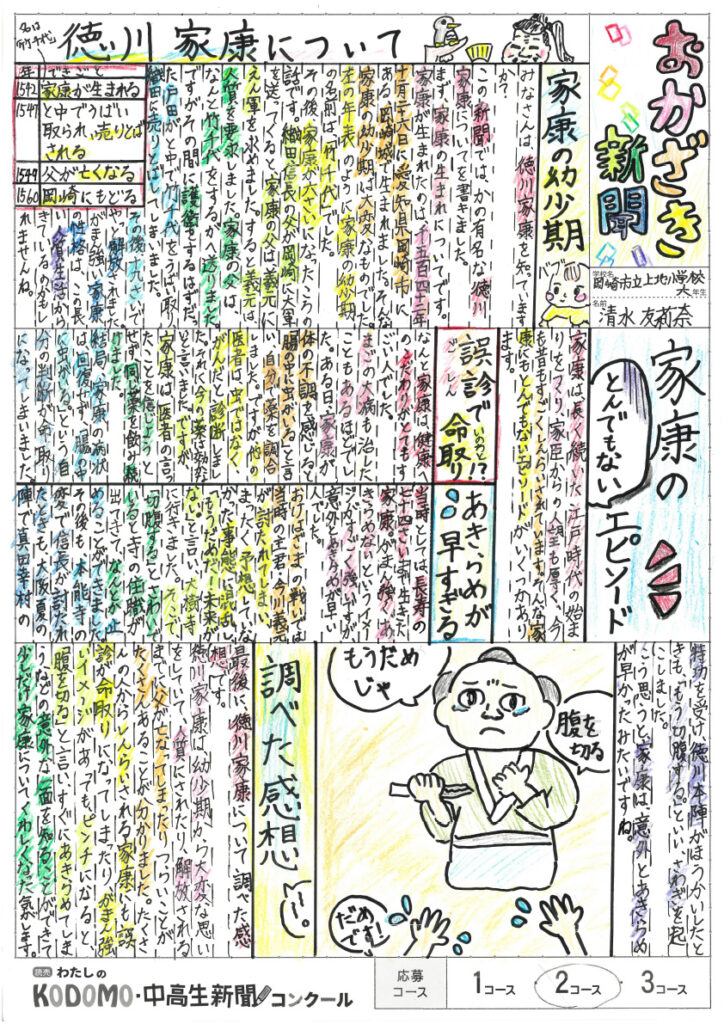 おかざき
新聞
学校名
岡崎市立上地小学校
六年生
名前
清水 友莉奈
徳川 家康について
名は
竹千代
年
できごと
1542
家康が生まれる
1547
と中でうばい
取られ、売りとば
される
1549
父が亡くなる
1560
岡崎にもどる
家康の幼少期
バブ
みなさんは、徳川家康を知っています
か？
この新聞では、かの有名な徳川
家康についてを書きました。
まず、家康の生まれについてです。
家康が生まれたのは、千五百四十二年
十二月二十六日に愛知県岡崎市に
ある岡崎城で生まれました。そんな
家康の幼少期は大変なものでした。
左の年表のように、家康の幼少期
の名前は、「竹千代」でした。
その後、家康が六さいになったころの
話です。織田信長の父が岡崎に大軍
を送ってくると、家康の父は義元に
えん軍を求めました。すると義元は
人質を要求しました。家康の父は
なんと竹千代をするが、送りました
ですがその間に護衛をするはずだっ
た戸田が、と中で竹千代をうばい取り
織田に売りとばし
その後十九さいで
やっと解放されました。
がまん強い家康
の性格は、この長
い人質生活から
きているのかもし
れませんね。
家康の
とんでもない
エピソード
家康は、長く続いた江戸時代の始ま
りをつくり、家臣からの人望も厚く、今
も昔もすごくしんらいされています。そんな家
康にもとんでもないエピソードがいくつかあり
ます。
誤診で
ごしん
命取り!?
いのちと
なんと家康は、健康
へのこだわりがとてもす
ごい人でした。
まごの大病も治した
こともあるほどでし
た。ある日、家康が
体の不調を感じると
「腸の中に虫がいる」と言
い、自分で薬を調合し
ました。だけど、他の
医者は、虫ではなく
がんだと診断しまし
た。それに、今の薬は効かな
いと言いました。ですが
家康は、医者の言っ
たことを信じようと
せず、同じ薬を飲み続
けました。
結局、家康の病状
は回復せず、「腸の中
に虫がいる。」という自
分の判断が命取り
になってしまいました。
あきらめが
早すぎる
当時としては、長寿の
七十四さいまで生きた
家康。がまん強く、あ
きらめないというイメー
ジがすごく強いですが
意外とあきらめが早い
人でした。
おけはざまの戦いでは
当時の主君・今川義元
が討たれてしまい、
まったく予想していな
かった事態に混乱し、
「もうだめだ」未来が
ないと言い、大樹寺
に行きました。そこで
「切腹する」とさわいで
いると寺の住職が
出てきて、なんとか止
めることができました
その後も、本能寺の
変で信長が討たれ
たときも、大阪夏の
陣で真田幸村の
特功を受け、徳川本陣がほうかいしたと
きも、「もう切腹する。」といい、さわぎを起
こしました。
こう思うと、家康は、意外とあきらめ
が早かったみたいですね。
もうだめ
じゃ
腹を
切る
だめ
です!
調べた感想
最後に、徳川家康について調べた感
想です。
徳川家康は、幼少期から大変な思い
をしていて、人質にされたり、解放される
までに父が亡くなってしまったり、つらいことが
たくさんあることが分かりました。たくさ
んの人からしんらいされる家康でも、誤
診が命取りになってしまったり、がまん強
いイメージがあっても、ピンチになると「
腹を切る」と言い、すぐにあきらめてしま
うなどの意外な一面を知ることができて
少しだけ家康についてくわしくなった気がします。
読売 わたしの
KODOMO・中高生新聞 コンクール
応募
コース
1コース・2コース・3コース